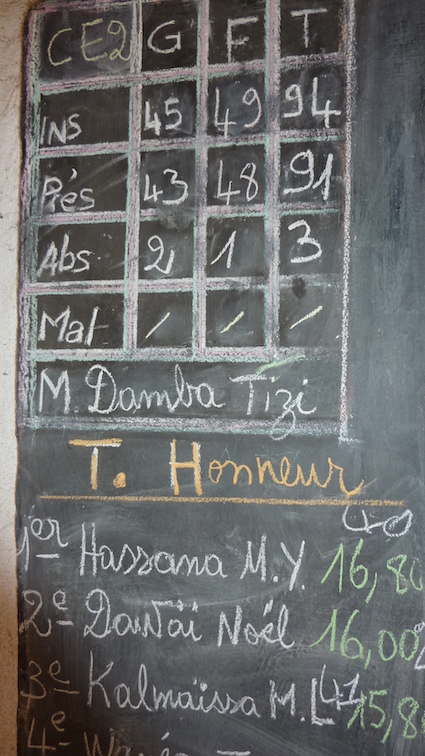 CE2 G F T
Ins 45 49 94
Prés 43 48 91
Abs 2 1 3
Mal / / /
M. Damba Tizi
T. Honneur
1er Hassana M.Y. 16,80
2e Daïwaï Noël 16,00
3e Kalmaïssa M.L 41 15,8
4e